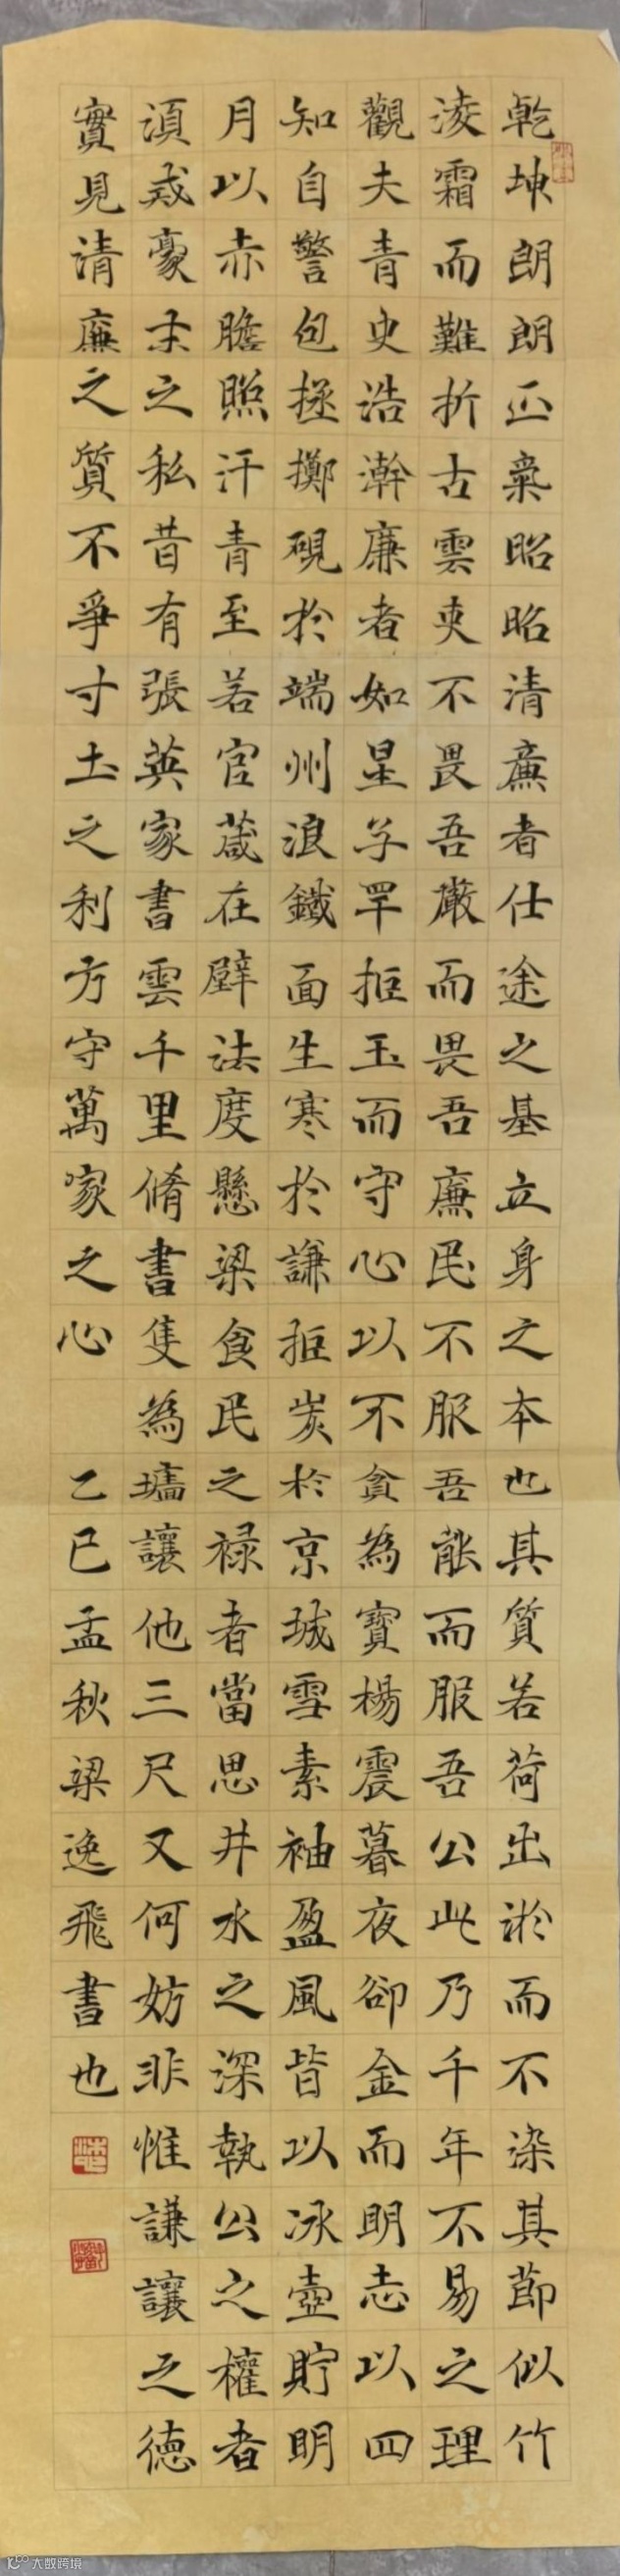 乾坤朗朗正氣昭昭清廉者仕途之基立身之本也其質若荷出淤而不染其節似竹
淩霜而難折古雲吏不畏吾嚴而畏吾廉民不服吾能而服吾公此乃千年不易之理
觀夫青史浩瀚廉者如星子罕拒玉而守心以不貪為寶楊震暮夜卻金而明志以四
知自警包拯擲硯於端州浪鐵面生寒於謙拒炭於京城雪素袖盈風皆以冰壺貯明
月以赤膽照汗青至若官箴在壁法度懸梁食民之祿者當思井水之深執公之權者
須戒豪末之私昔有張英家書雲千里脩書隻為墻讓他三尺又何妨非惟謙讓之德
實見清廉之質不爭寸土之利方守萬家之心
乙巳孟秋梁逸飛書也
大数跨境